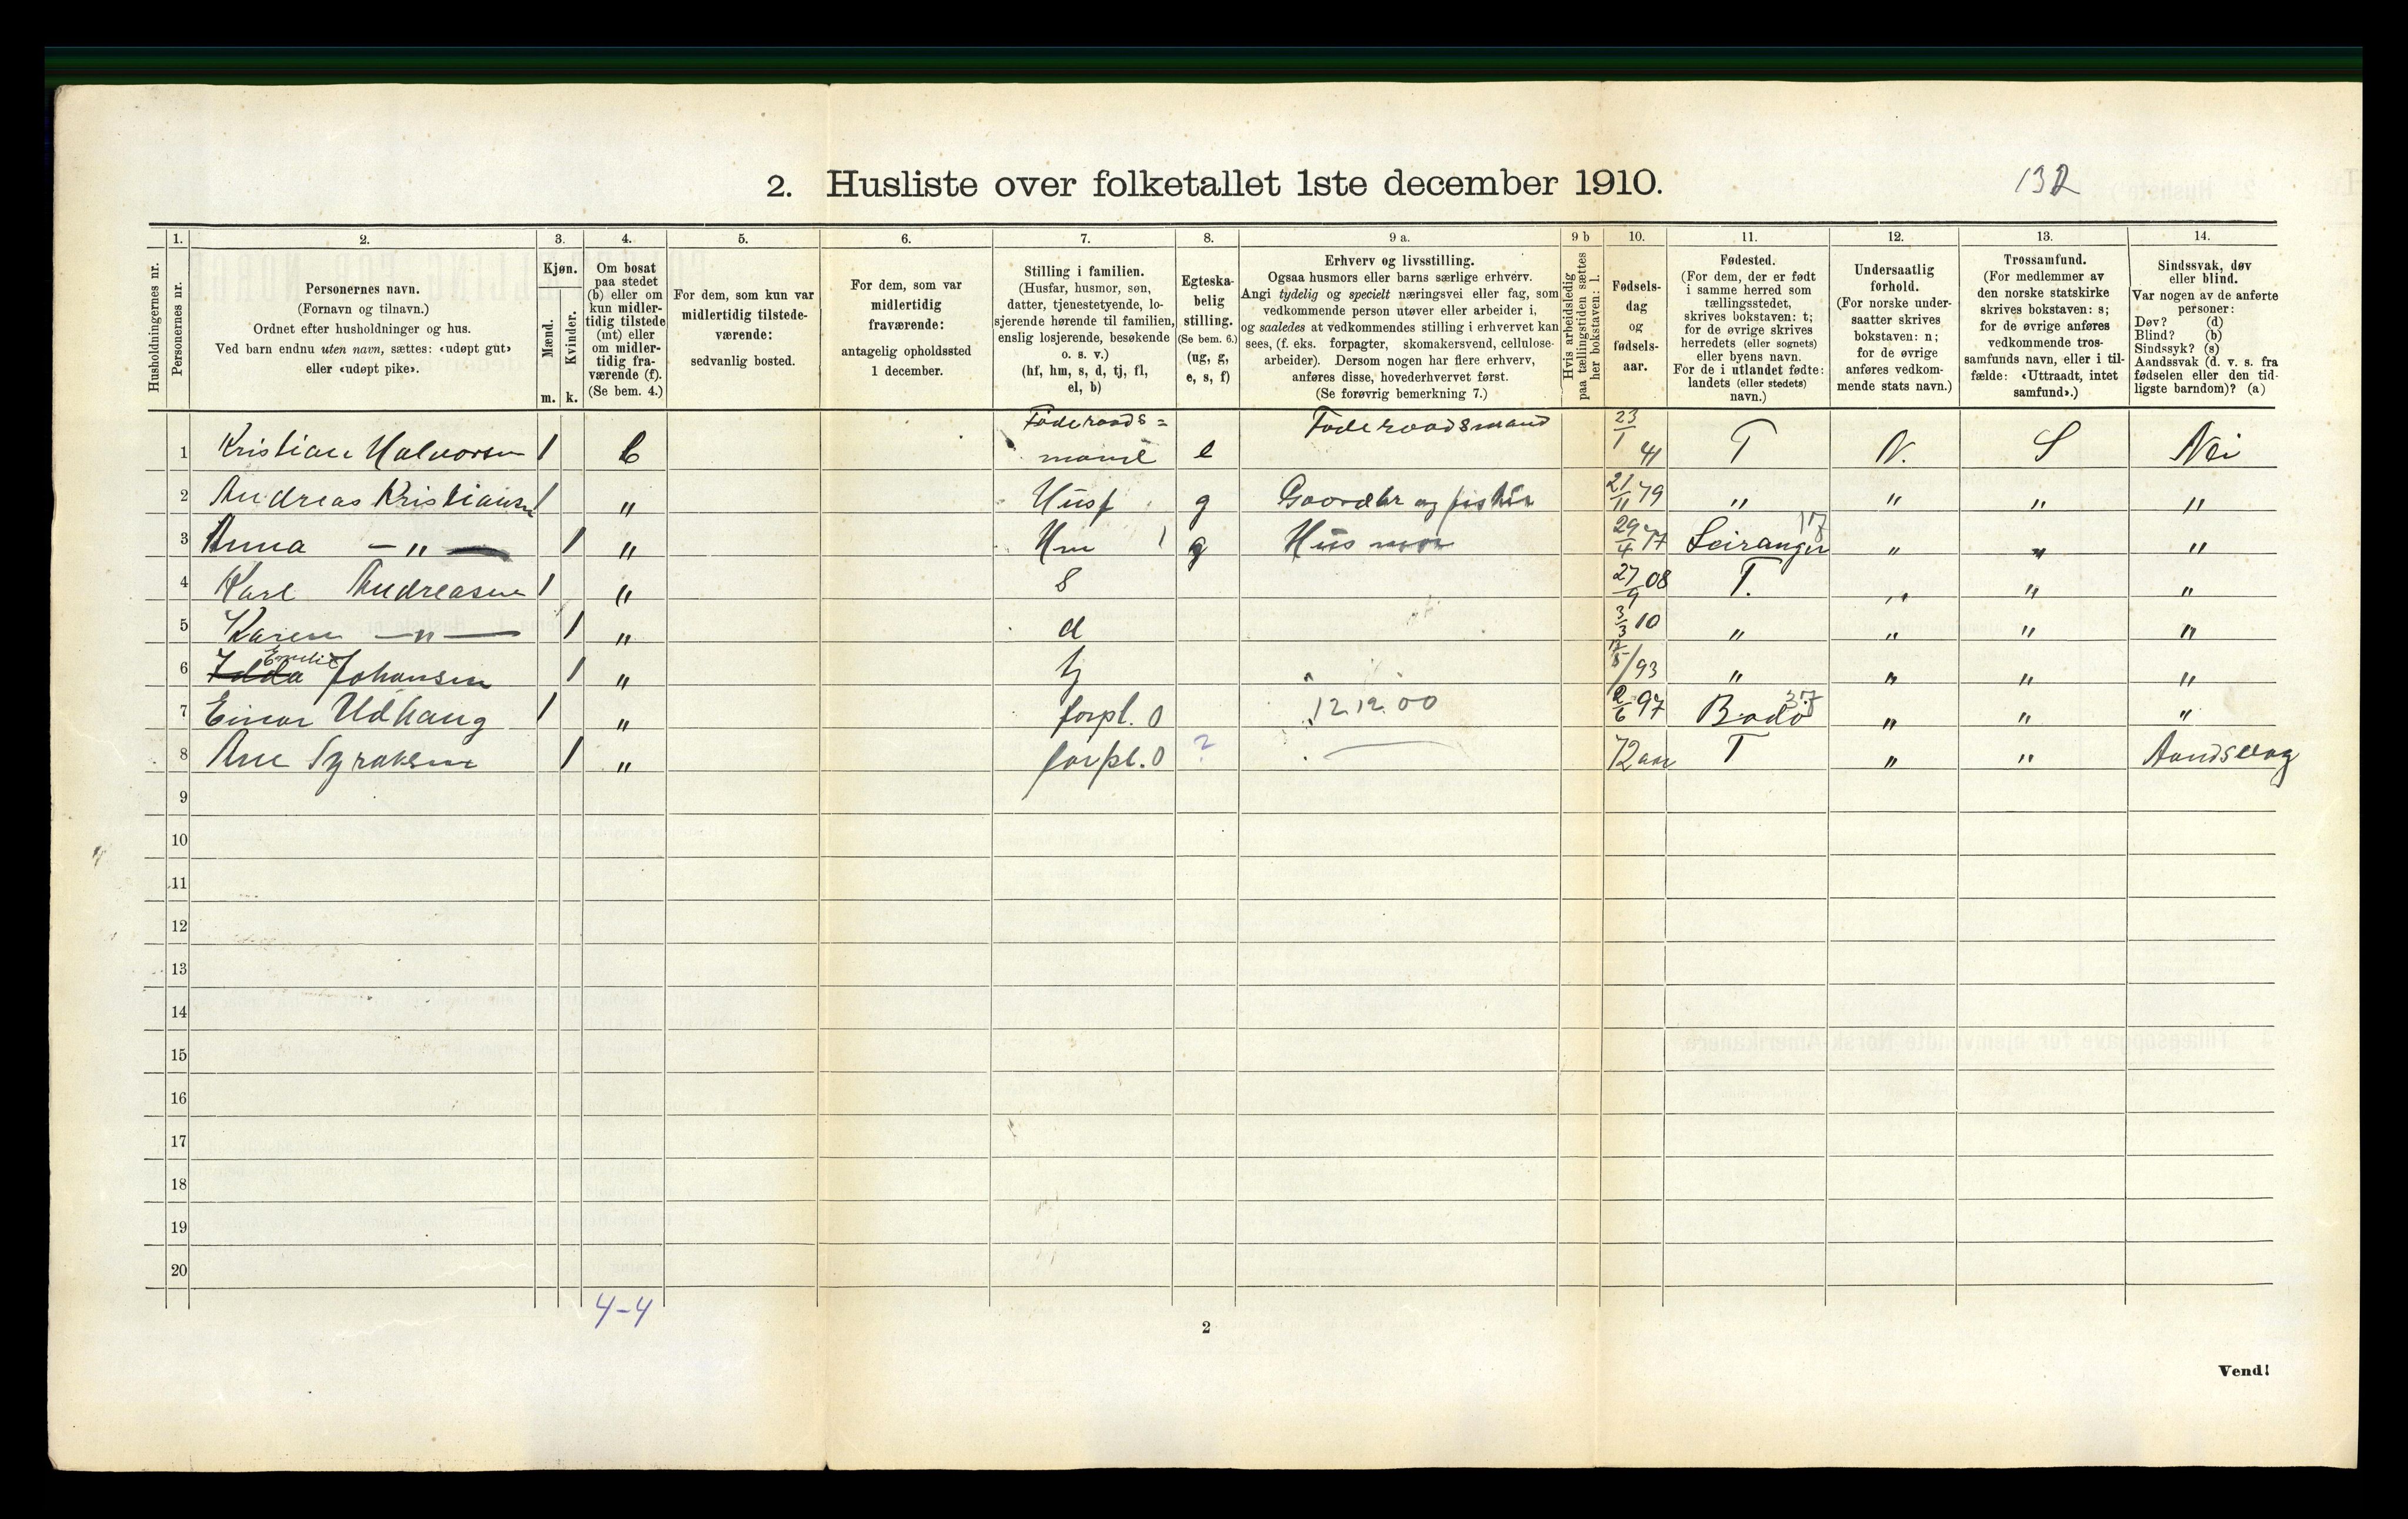 2. Husliste over folketallet 1ste december 1910.
132
Husholdningernes nr.
1.
Personernes nr.
2.
Personernes navn.
(Fornavn og tilnavn.)
Ordnet efter husholdninger og hus.
Ved barn endnu uten navn, sættes: «udøpt gut»
eller «udøpt pike».
3.
Kjøn.
Mænd.
Kvinder.
m. k.
4.
Om bosat
paa stedet
(b) eller om
kun midler-
tidig tilstede
(mt) eller
om midler-
tidig fra-
værende (f).
(Se bem. 4.)
5.
For dem, som kun var
midlertidig tilstede-
værende:
sedvanlig bosted.
6.
For dem, som var
midlertidig
fraværende:
antagelig opholdssted
1 december.
7.
Stilling i familien.
(Husfar, husmor, søn,
datter, tjenestetyende, lo-
sjerende hørende til familien,
enslig losjerende, besøkende
o. s. v.)
(hf, hm, s, d, tj, fl,
el, b)
8.
Egteska-
belig
stilling.
(Se bem. 6.)
(ug, g,
e, s, f)
9 a.
Erhverv og livsstilling.
Ogsaa husmors eller barns særlige erhverv.
Angi tydelig og specielt næringsvei eller fag, som
vedkommende person utøver eller arbeider i,
og saaledes at vedkommendes stilling i erhvervet kan
sees, (f. eks. forpagter, skomakersvend, cellulose-
arbeider). Dersom nogen har flere erhverv,
anføres disse, hovederhvervet først.
(Se forøvrig bemerkning 7.)
9 b
Hvis arbeidsledig
paa tællingstiden sættes
her bokstaven: l.
10.
Fødsels-
dag
og
fødsels-
aar.
11.
Fødested.
(For dem, der er født
i samme herred som
tællingsstedet,
skrives bokstaven: t;
for de øvrige skrives
herredets (eller sognets)
eller byens navn.
For de i utlandet fødte:
landets (eller stedets)
navn.)
12.
Undersaatlig
forhold.
(For norske under-
saatter skrives
bokstaven: n;
for de øvrige
anføres vedkom-
mende stats navn.)
13.
Trossamfund.
(For medlemmer av
den norske statskirke
skrives bokstaven: s;
for de øvrige anføres
vedkommende tros-
samfunds navn, eller i til-
fælde: «Uttraadt, intet
samfund».)
14.
Sindssvak, døv
eller blind.
Var nogen av de anførte
personer:
Døv? (d)
Blind? (b)
Sindssyk? (s)
Aandssvak (d. v. s. fra
fødselen eller den tid-
ligste barndom)? (a)
1 Kristian Halvorsen 1 b Føderaads= mand e Føderaadsmand 23/1 41 T N. S Nei
2 Andreas Kristiansen 1 " Husf g Gaardbr og fisker 21/11 79 " " " "
3 Anna — " — 1 " Hm 1 g Husmor 29/4 77 Leiranger 17 " " "
4 Karl Andreasen 1 " S 27/9 08 T. " " "
5 Karen — " — 1 " d 3/3 10 " " " "
6 Emelie Johansen 1 " tj 93 " " " "
7 Einar Udhaug 1 " forpl. 0 12.12.00 2/6 97 Bodø 37 " " "
8 Ane Syraksen 1 " forpl. 0 ? 72 aar T " " Aandsvag
9
10
11
12
13
14
15
16
17
18
19
20
4-4
2
Vend!